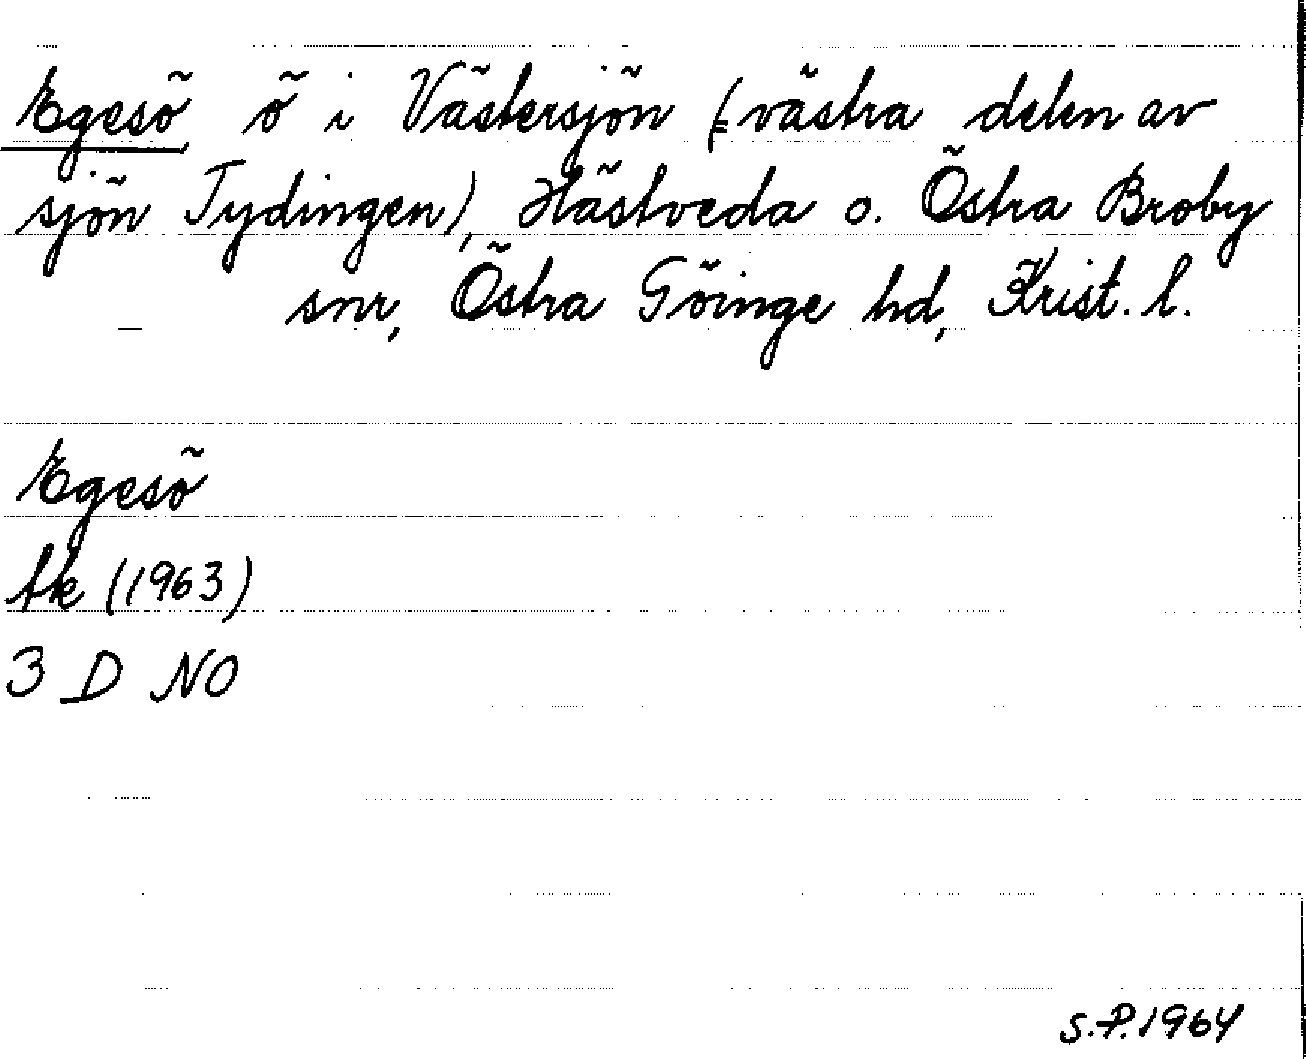 Egesö, ö i Västersjön (= västra delen av
sjön Tydingen), Hästveda o. Östra Broby
snr, Östra Göinge hd, Krist. l.
Egesö
fk (1963)
3 D NO
S.P. 1964